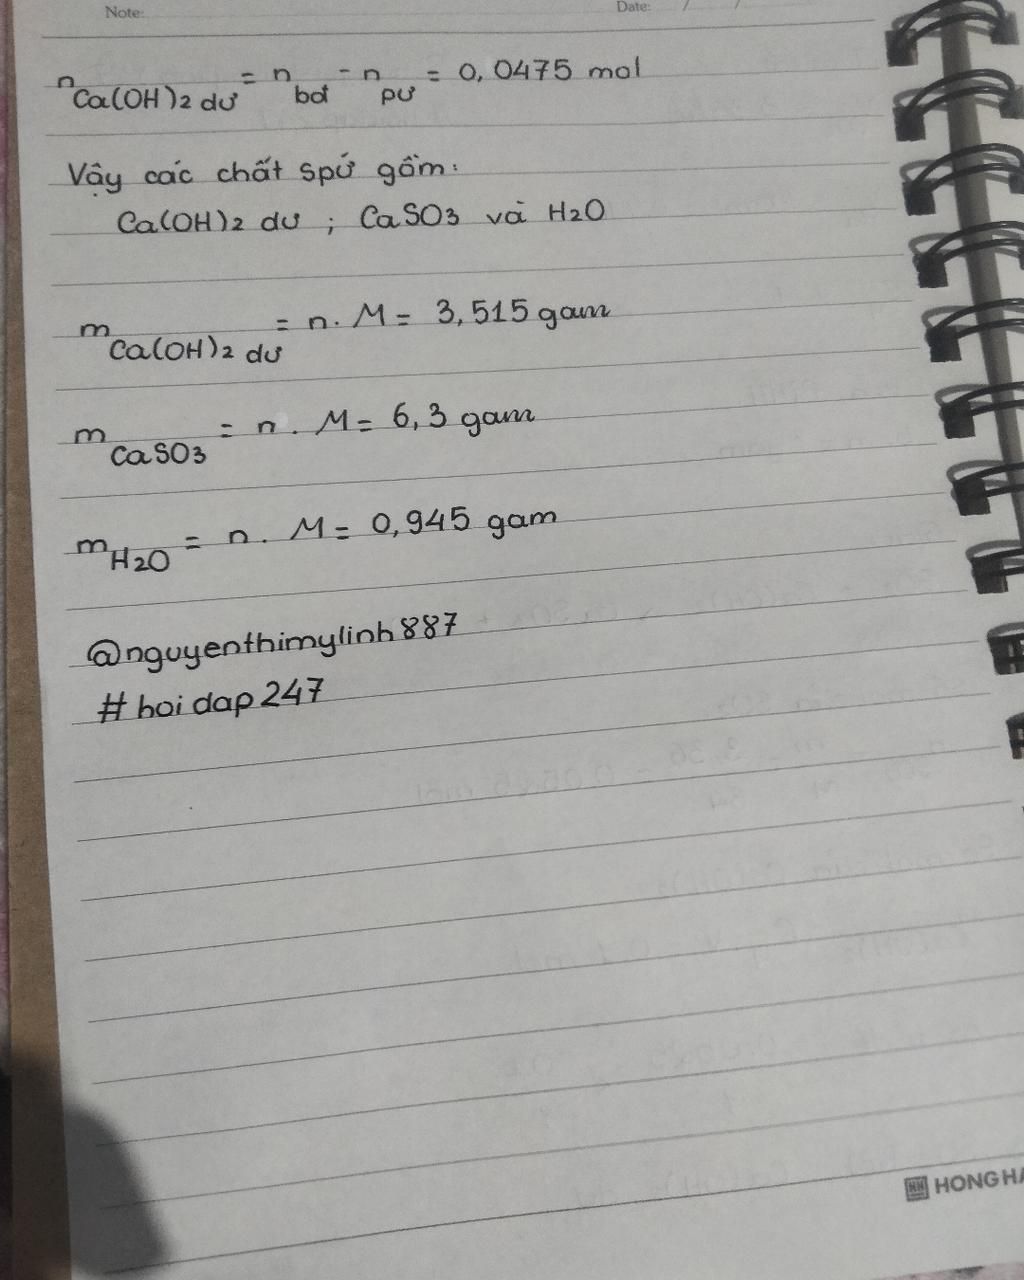 Note: Date: / /
n Ca(OH)2 dư = n bđ - n pư = 0,0475 mol
Vậy các chất spứ gồm:
Ca(OH)2 dư ; CaSO3 và H2O
m Ca(OH)2 dư = n. M = 3,515 gam
m CaSO3 = n . M = 6,3 gam
m H2O = n. M = 0,945 gam
@nguyenthimylinh887
# hoi dap 247
HONG HA